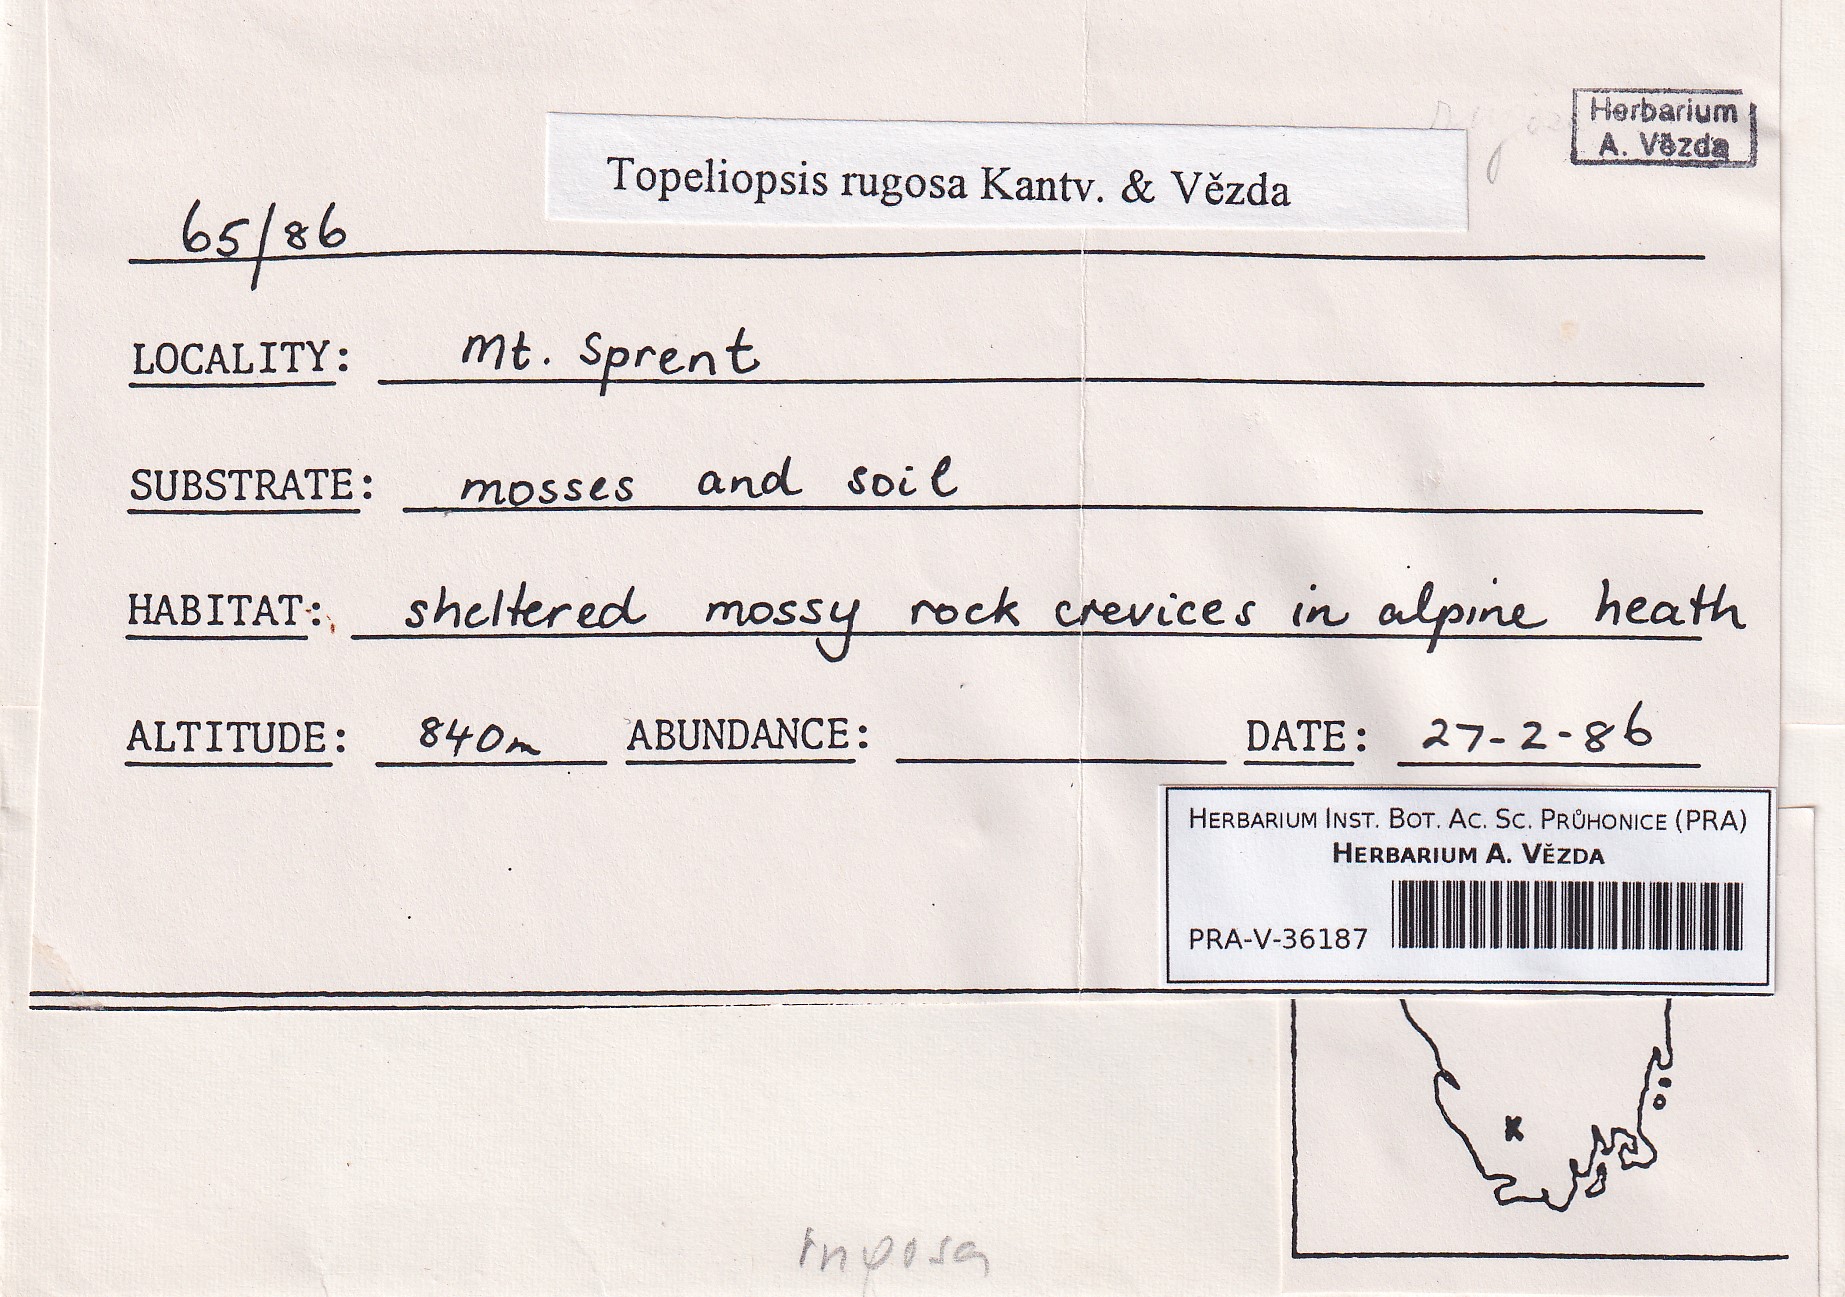 Herbarium
A. Vězda
Topeliopsis rugosa Kantv. & Vězda
65/86
LOCALITY: Mt. Sprent
SUBSTRATE: mosses and soil
HABITAT: sheltered mossy rock crevices in alpine heath
ALTITUDE: 840m ABUNDANCE: DATE: 27-2-86
HERBARIUM INST. BOT. AC. SC. PRŮHONICE (PRA)
HERBARIUM A. VĚZDA
PRA-V-36187
x
rugosa